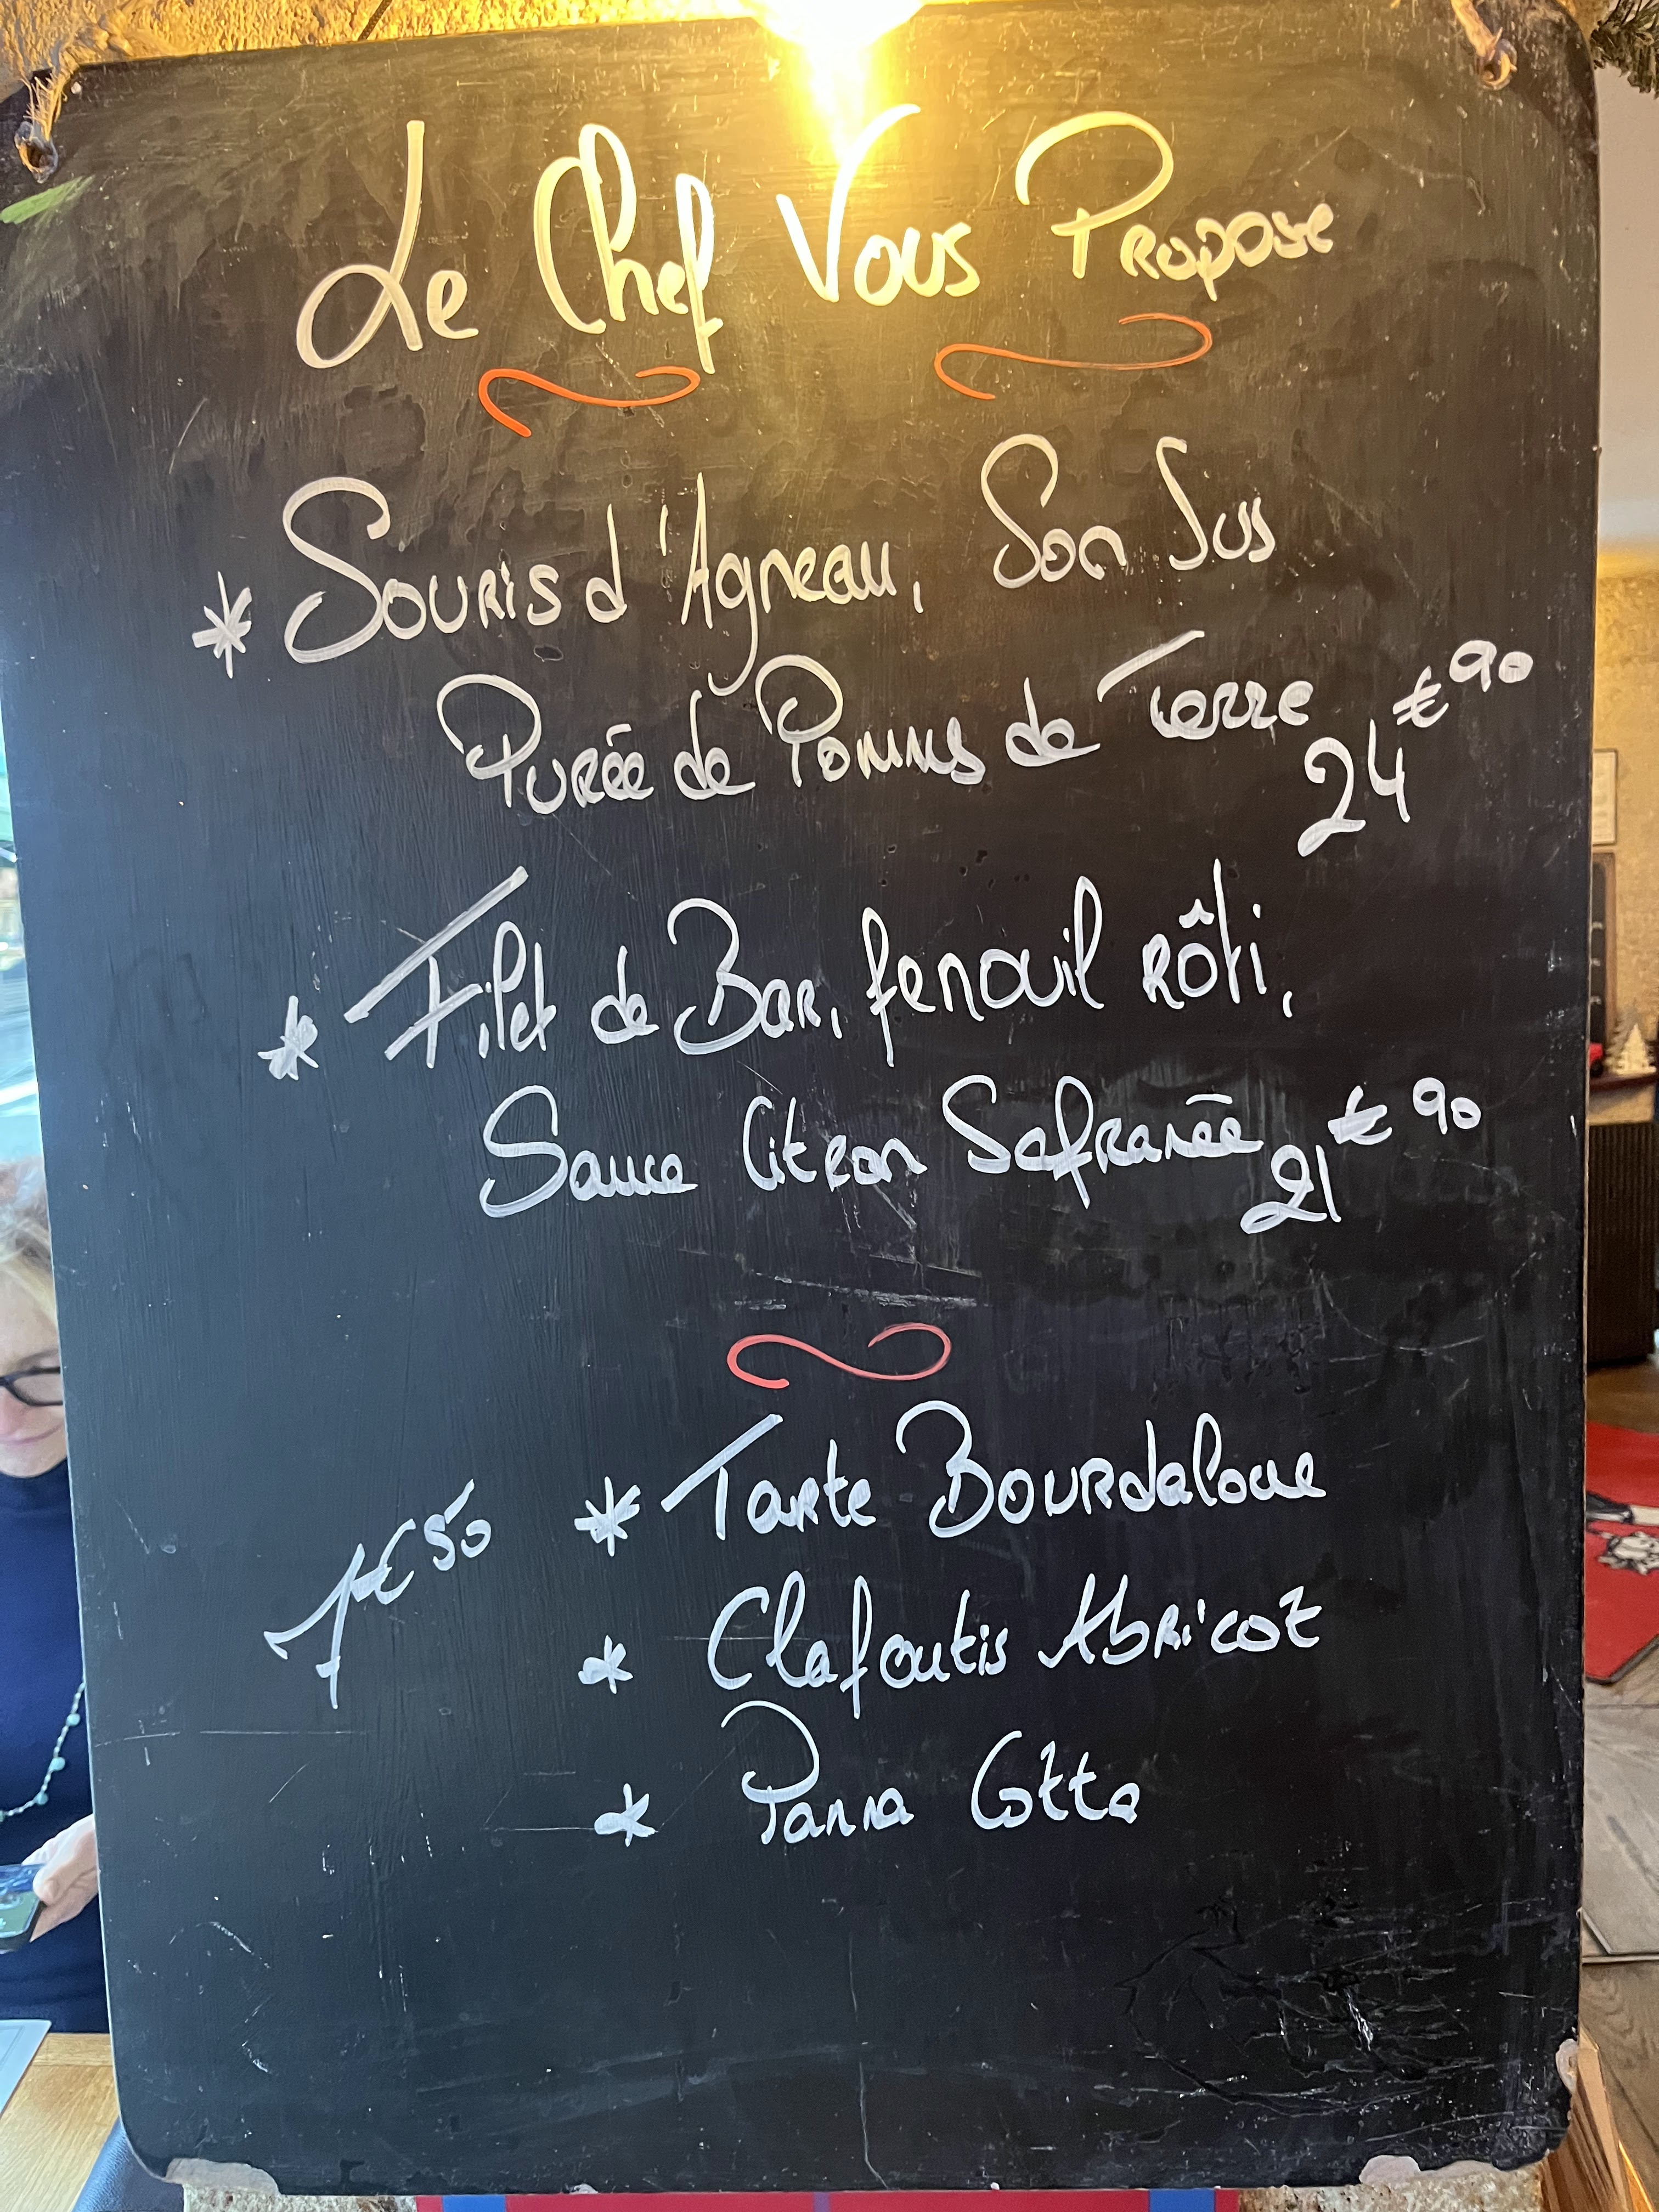 Le Chef Vous Propose
* Souris d'Agneau, Son Jus
Purée de Pommes de Terre 24€90
* Filet de Bar, fenouil rôti,
Sauce Citron Safranée 21€90
* Tarte Bourdaloue
7€50
* Clafoutis Abricot
* Panna Cotta